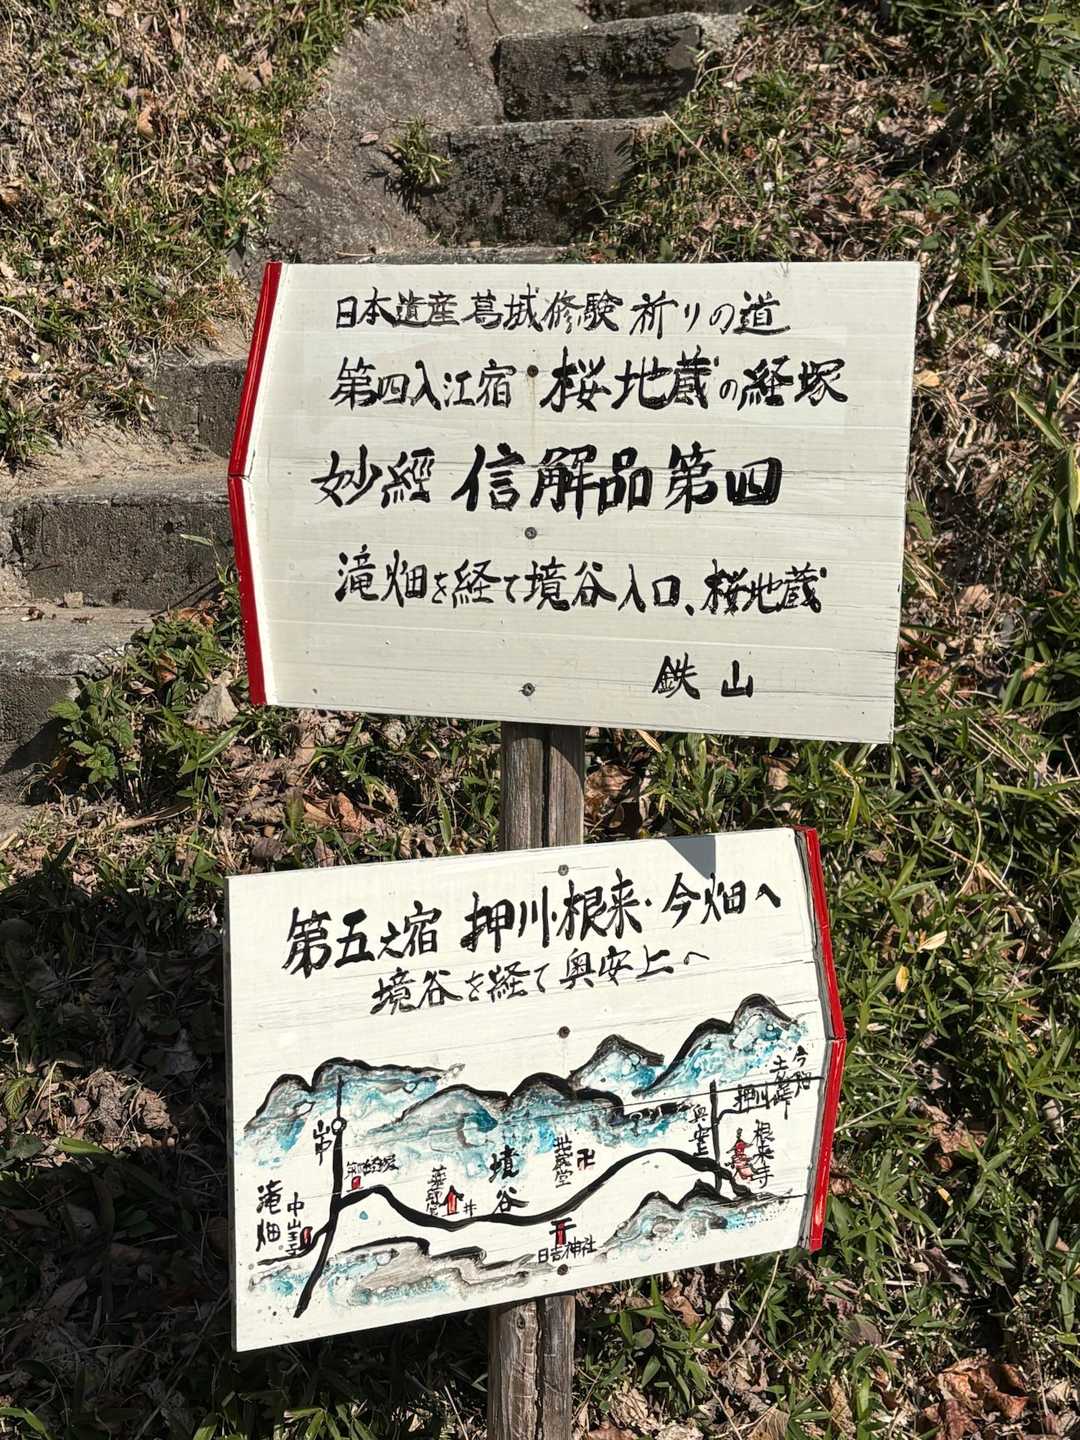 日本遺産葛城修験 祈りの道
第四入江宿 桜地蔵の経塚
妙經 信解品第四
滝畑を経て境谷入口、桜地蔵
鉄山
第五之宿 押川・根来・今畑へ
境谷を経て奥安上へ
今畑
押川
根来寺
奥安上
境谷
卍
井
日吉神社
滝畑
中山寺